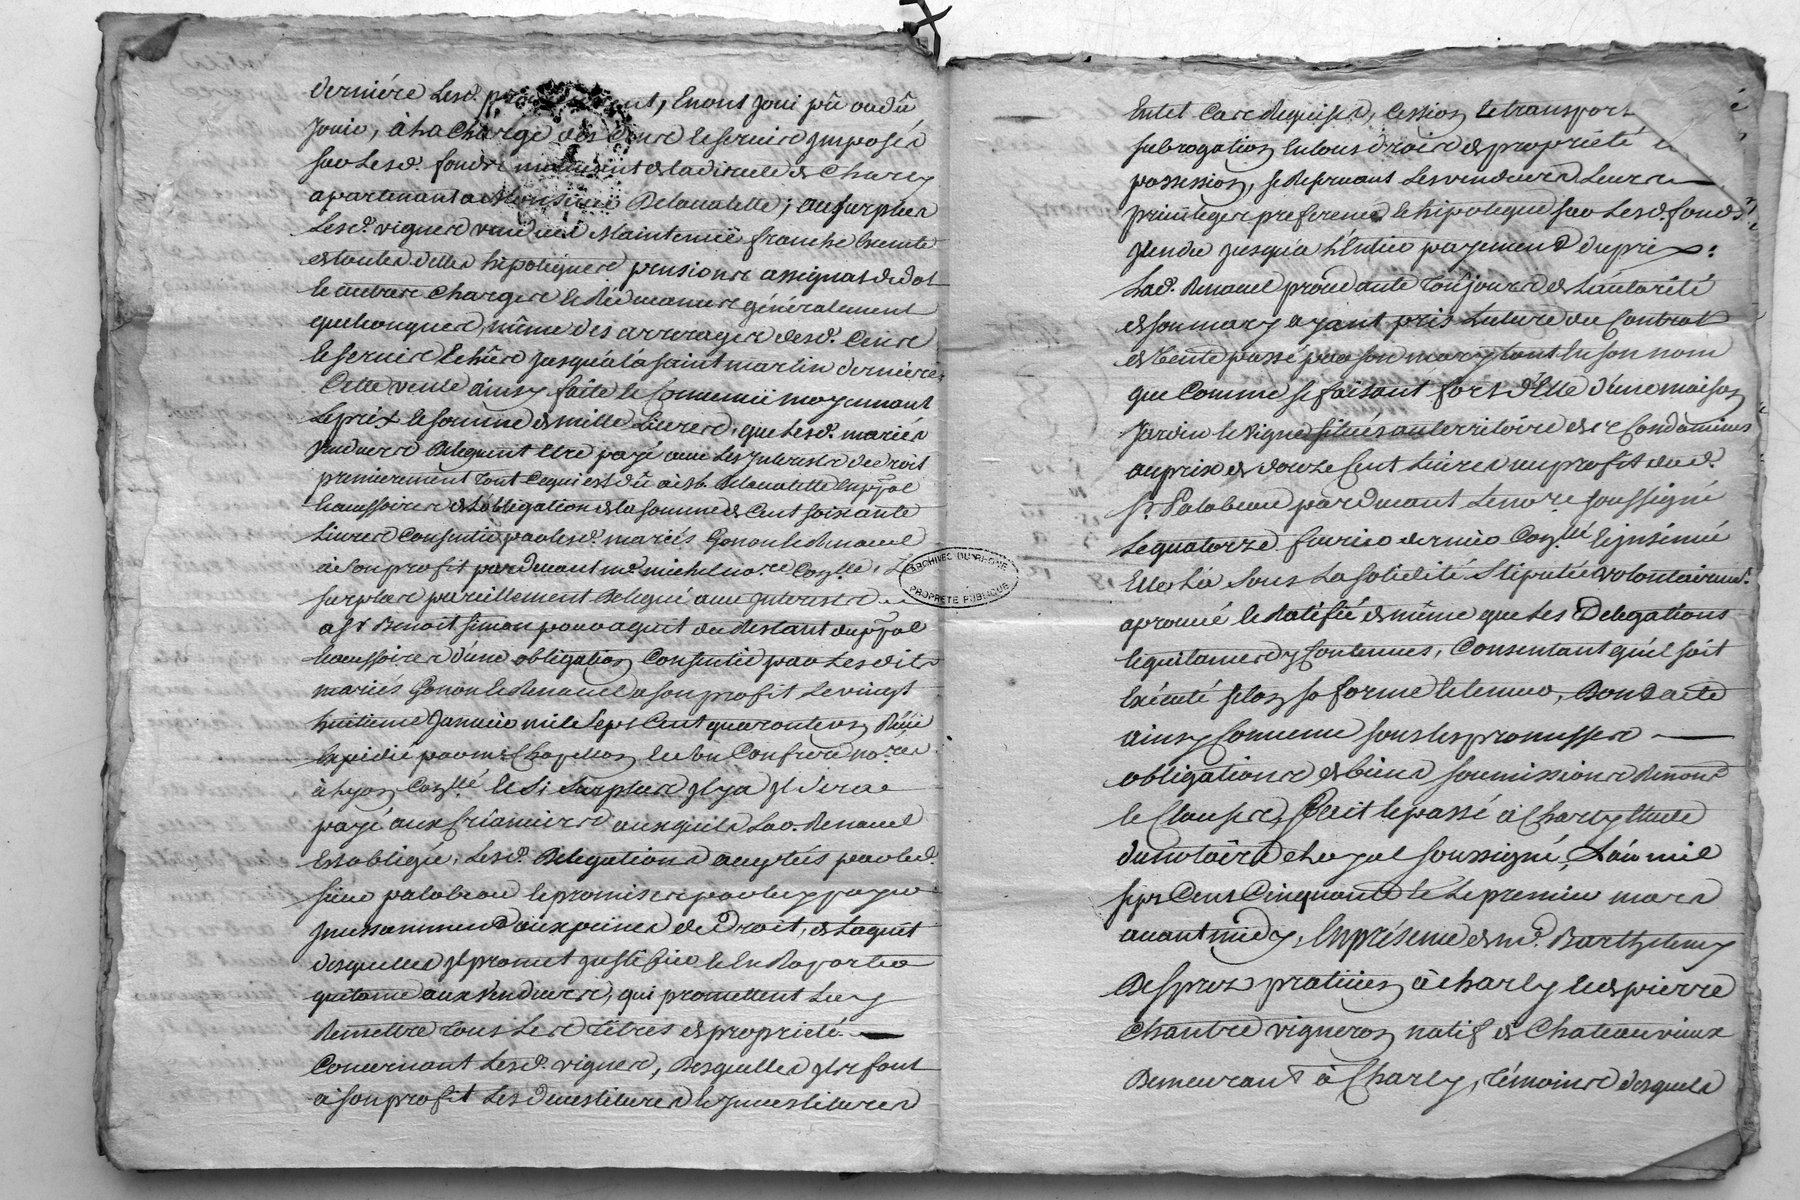 derniére lesd. ont Joui pû ou dû
Jouir, à la charge des Cens et servis Imposés
sur lesd. fonds de la directe de Charly
apartenant a Monsieur Delavalette; au surplus
lesd. vignes vendues Maintenüe franche Exemte
de toutes dettes hipoteques pensions assignat de dot
et autres charges et Redevances généralement
quelconques, même des arrerages desd. Cens
et servis échûs Jusqu'à la saint martin derniere.
Cette vente ainsy faite et Convenüe moyennant
le prix et somme de mille livres, que lesd. mariés
vendeurs Deleguent etre payé avec les Interests de droit
premierement tout ce qui est dû Delavalette en ppal
et accessoires de l'obligation de la somme de Cent soixante
livres Consentie par lesd. mariés Gonon et Renaud
à son profit pardevant me. michel no.re
surplus pareillement delegué avec Interests
a Sr Benoit Simon pour aquit du Restant du ppal
et accessoires d'une obligation Consentie par lesdits
mariés Gonon et Renaud a son profit le vingt
huitieme Janvier mil sept Cent quarante
Expédié par me Chapellon et son Confrere no.res
à Lyon et si surplus Il y a Il sera
payé aux Créanciers auxquels lad. Renaud
Est obligée, lesd. Delegations acceptés par led.
sieur palabeau et promises par luy payer
Incessamment aux peines de Droit, de laquit
desquelles Il promet justifier et En Raporter
quitance aux vendeurs, qui promettent luy
Remettre tous les titres de proprieté
Concernant lesd. vignes, Desquelles Ils font
à son profit les devestitures et Investitures
En tel Cas Requises, cession et transport
subrogation En tous droits de proprieté
possession, se Reservant les vendeurs leurs
privileges preferences et hipoteque sur lesd. fonds
vendu Jusqu'a l'Entier payement du prix:
Lad. Renaud procedante toujours de l'autorité
de son mary ayant pris lecture du Contrat
de vente passé par son mary tant En son nom
que Comme se faisant fort d'Elle d'une maison
Jardin et vigne situés au territoire des Condamines
au prix de douze Cent livres au profit dud.
Sr. Palabeau pardevant le no.re soussigné
le quatorze fevrier dernier et insinué
Elle l'a sous la solidité stipulée volontairemt.
aprouvé et Ratifié de même que les Delegations
et quitances y Contenues, Consentant qu'il soit
Executé selon sa forme et teneur, Dont acte
ainsy Convenu sous les promesses
obligations de biens soumissions Renonc
et Clauses, fait et passé à Charly Etude
du notaire Royal soussigné, L'an mil
sept Cent Cinquante et le premier mars
avant midy, En présence de me. Barthelemy
Desproz praticien à charly et de pierre
Chantre vigneron natif de Chateauvieux
Demeurant à Charly, témoins desquels
ARCHIVES DU RHONE
PROPRIÉTÉ PUBLIQUE